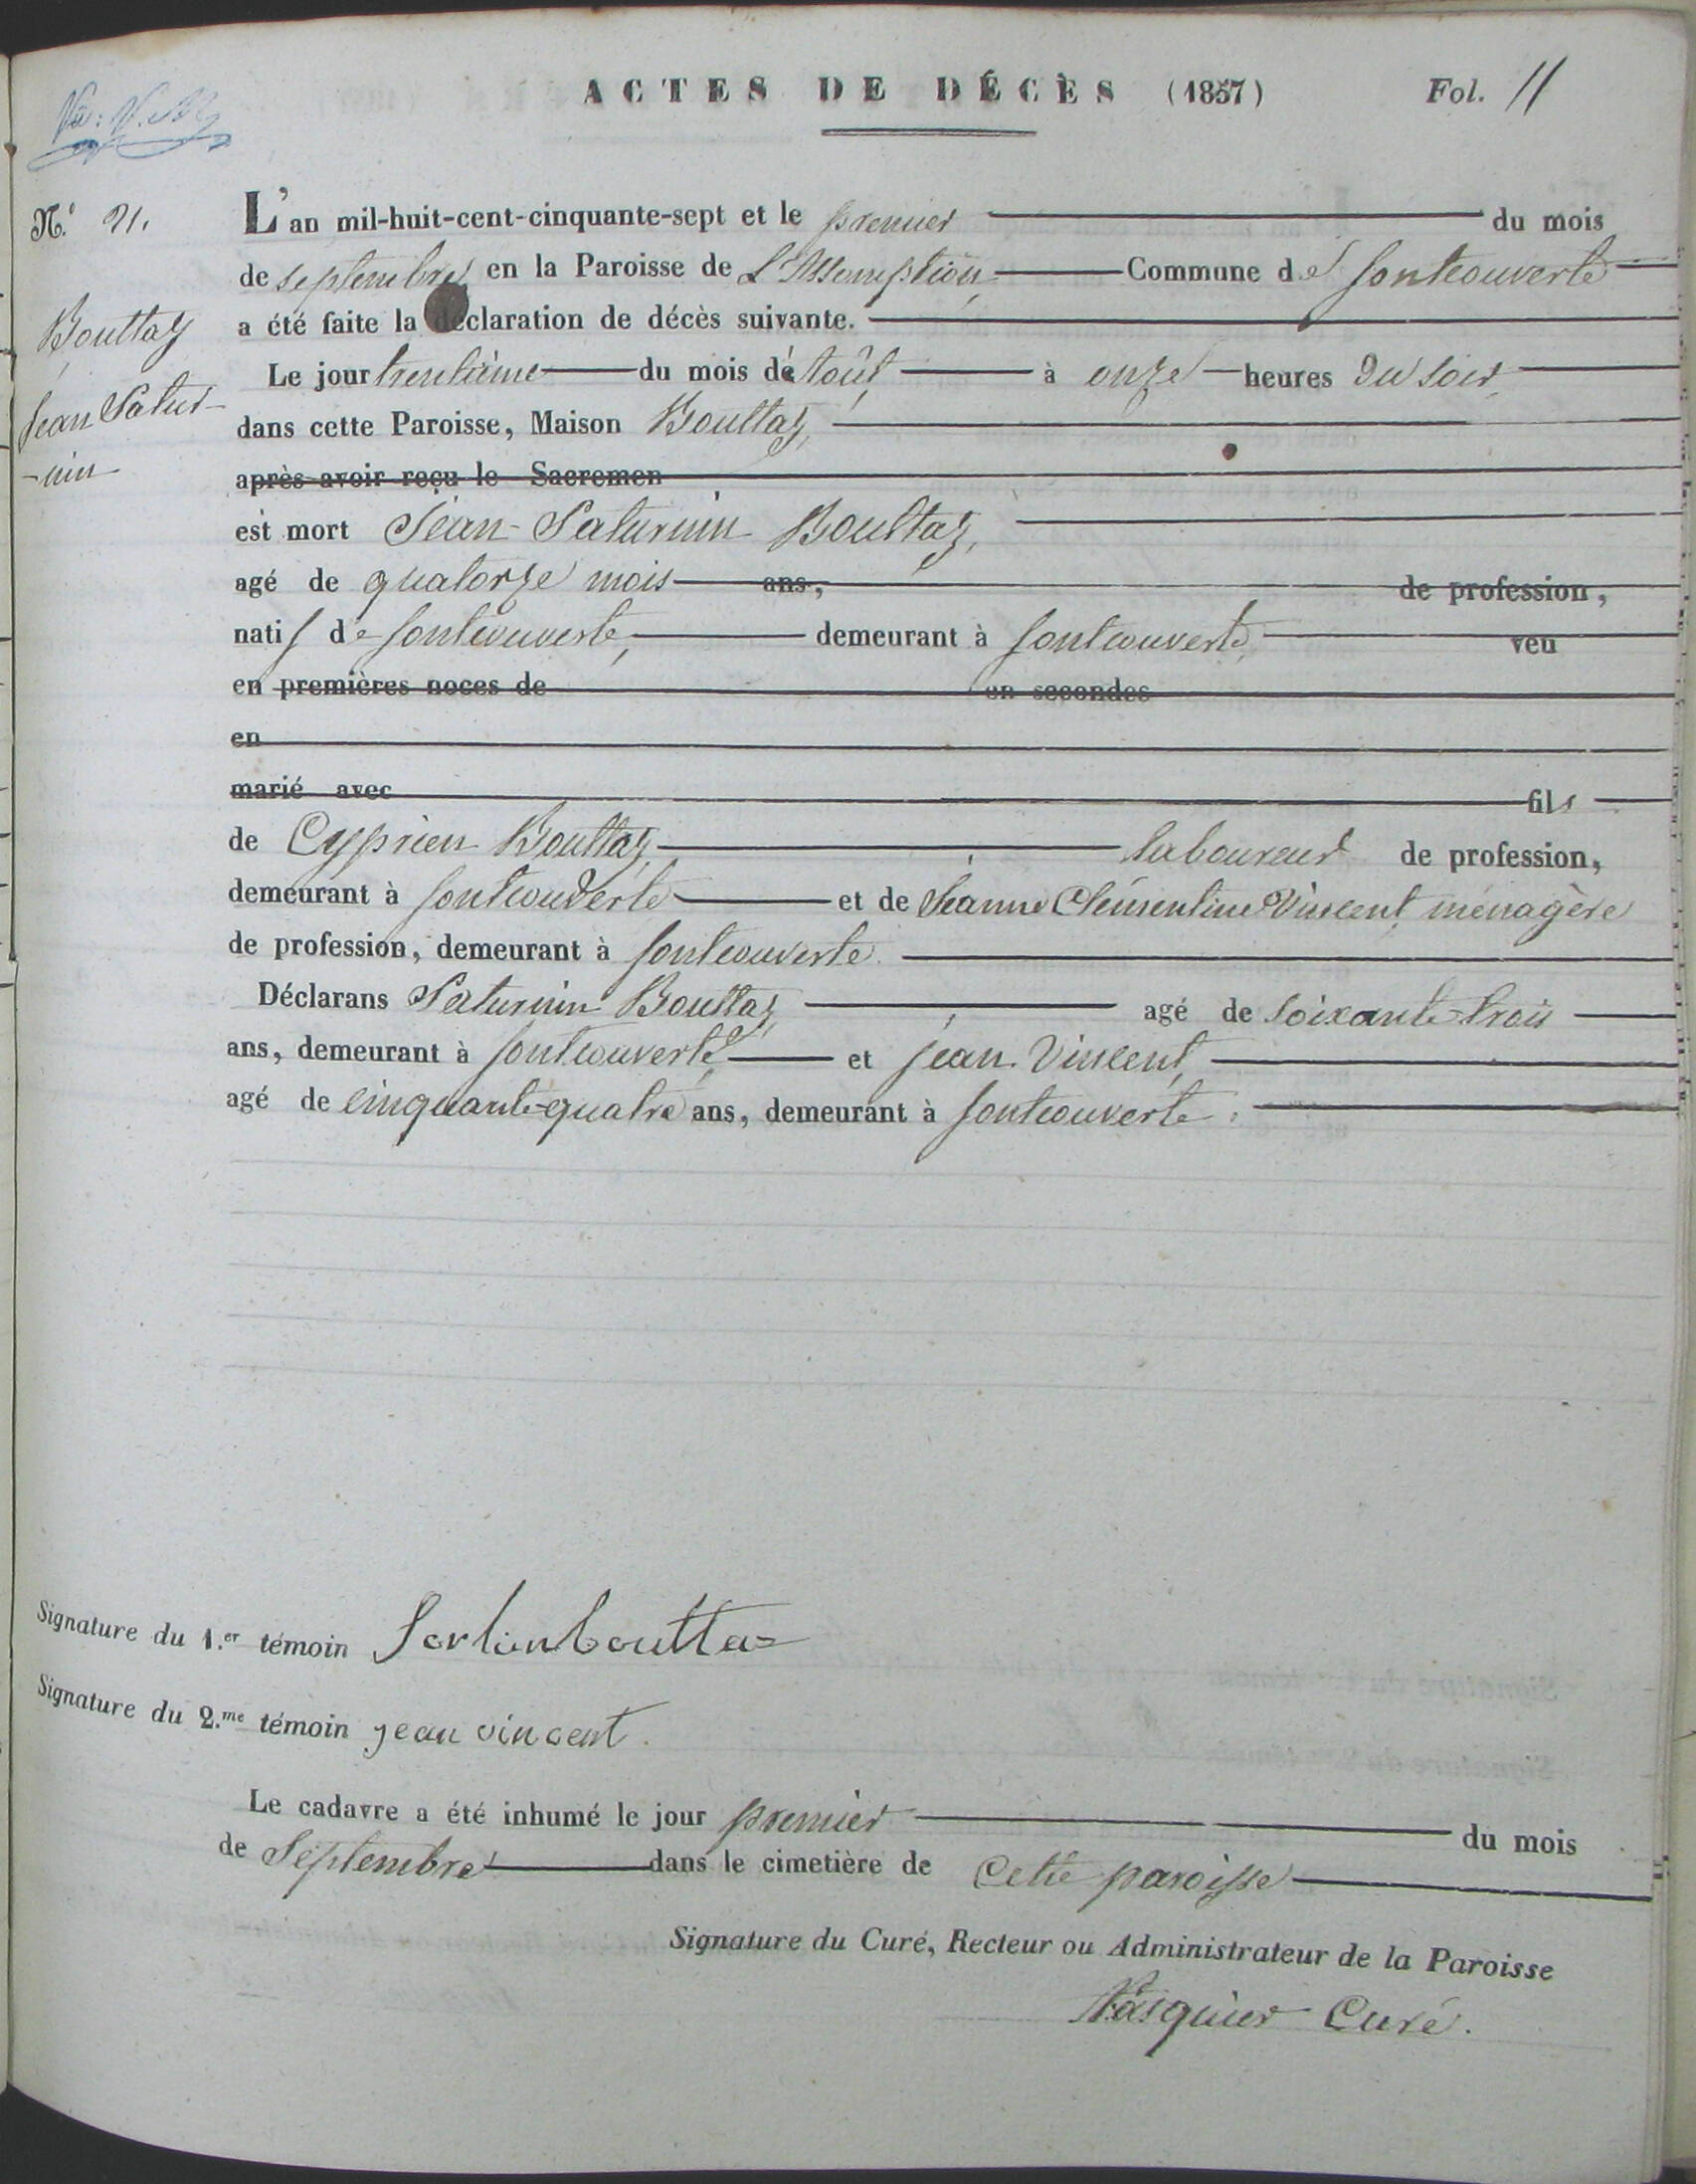 ACTES DE DÉCÈS (1857) Fol. 11
N.° 21.
Bouttaz
Jean Satur-
-nin
L'an mil-huit-cent-cinquante-sept et le premier du mois
de septembre en la Paroisse de L'Assomption Commune de fontcouverte
a été faite la déclaration de décès suivante.
Le jour trentième du mois d'août à onze heures du soir
dans cette Paroisse, Maison Bouttaz,
après avoir reçu le Sacremen
est mort Jean-Saturnin Bouttaz,
agé de quatorze mois ans, de profession,
natif de fontcouverte, demeurant à fontcouverte, veu
en premières noces de en secondes
en
marié avec fils
de Cyprien Bouttaz laboureur de profession,
demeurant à fontcouverte et de Jeanne Clémentine Vincent ménagère
de profession, demeurant à fontcouverte.
Déclarans Saturnin Bouttaz, agé de soixante-trois
ans, demeurant à fontcouverte, et jean Vincent,
agé de cinquante-quatre ans, demeurant à fontcouverte.
Signature du 1.er témoin Sorlinbouttaz
Signature du 2.me témoin jean vincent.
Le cadavre a été inhumé le jour premier du mois
de Septembre dans le cimetière de Cette paroisse
Signature du Curé, Recteur ou Administrateur de la Paroisse
Pasquier Curé.